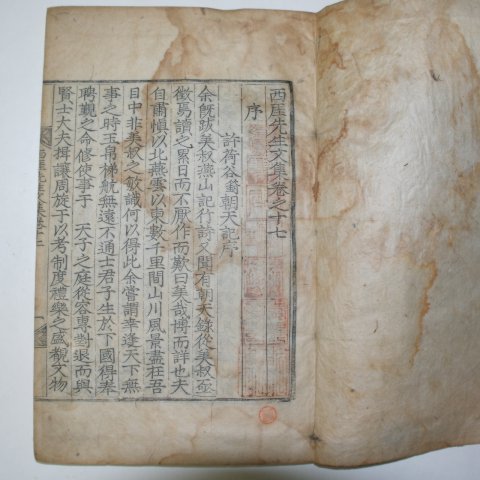 西厓先生文集卷之十七
序
許荷谷篈朝天記序
余旣跋美叔燕山記行詩又聞有朝天錄從美叔亟
徵焉讀之累日而不厭作而歎曰美哉博而詳也夫
自肅愼以北燕雲以東數千里間山川風景盡在吾
目中非美叔之敏識何以得此余嘗謂幸逢天下無
事之時玉帛梯航無遠不通士君子生於下國得奉
聘覲之命修使事于 天子之庭從容專對退而與
賢士大夫揖讓周旋于以考制度禮樂之盛觀文物